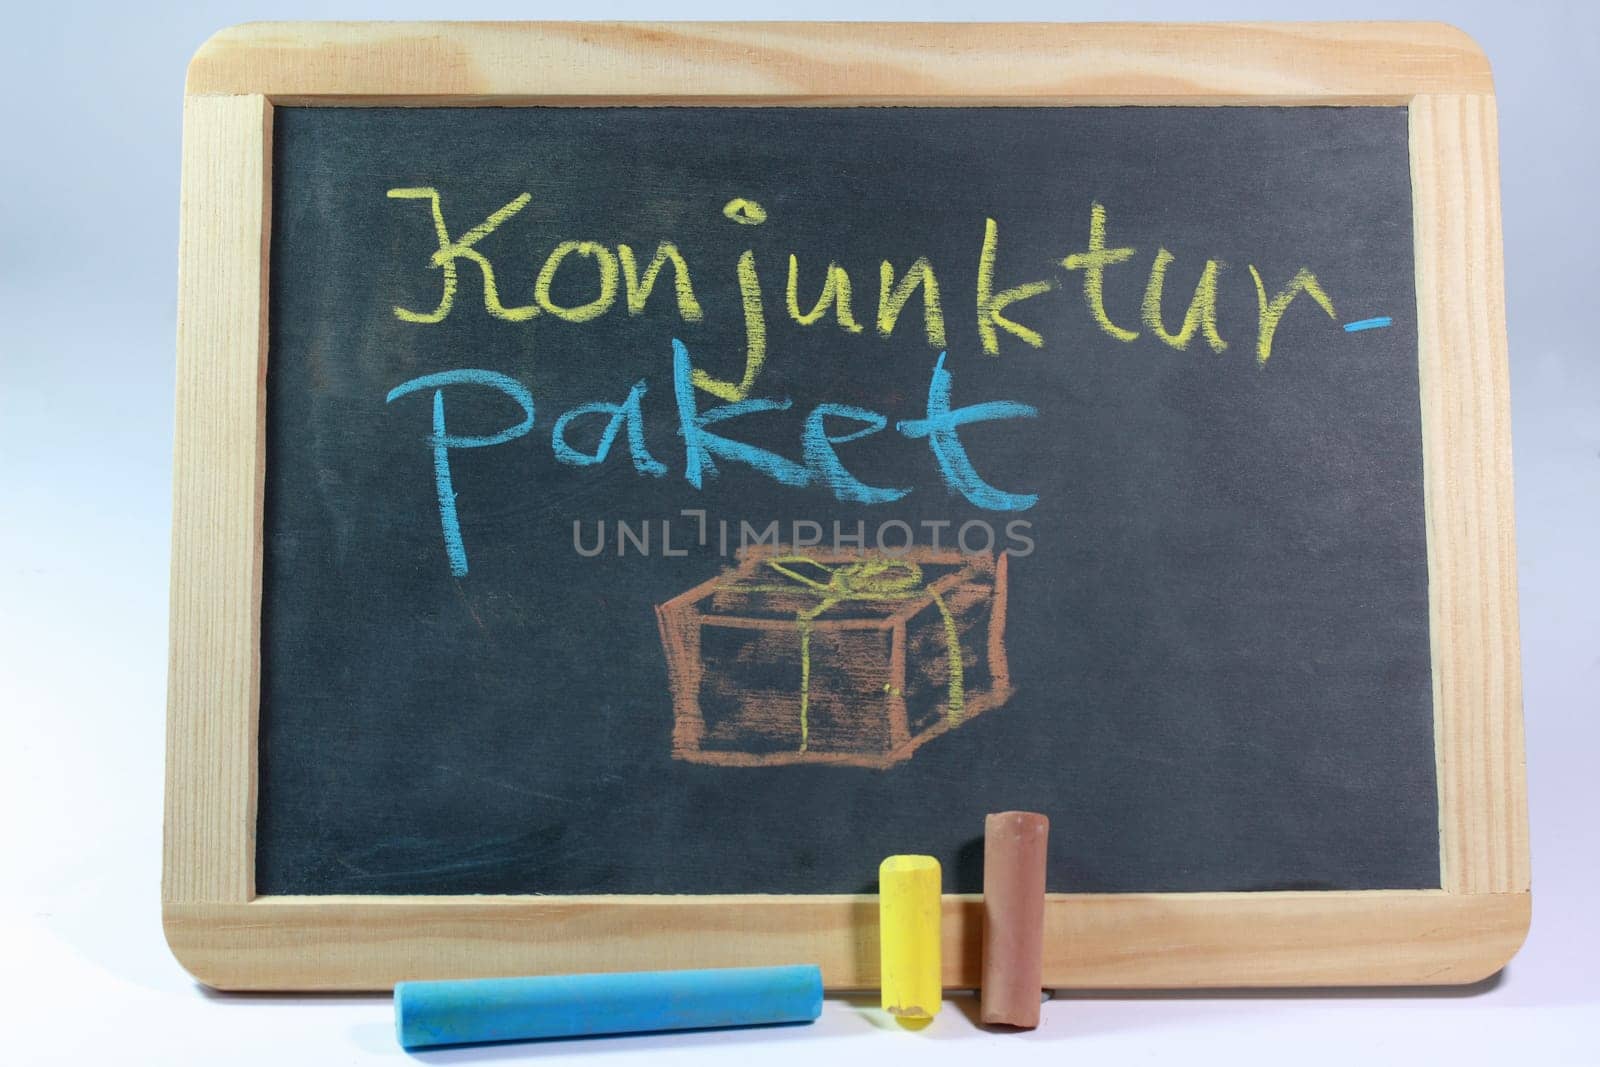 Konjunktur-
paket
UNLIMPHOTOS